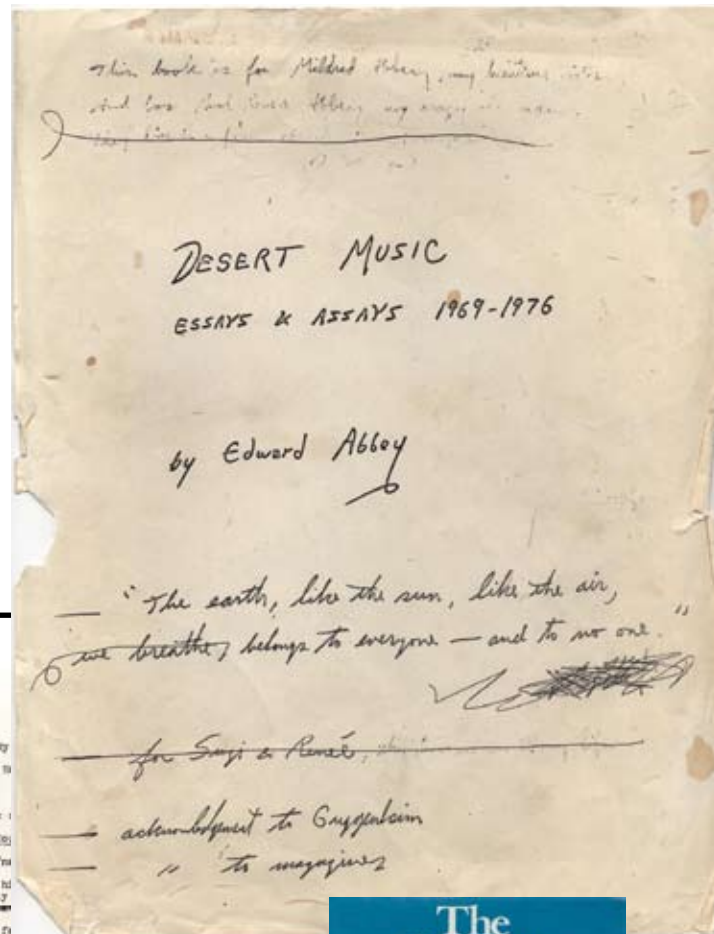 This book is for Mildred Abbey, my
And for Paul Revere Abbey my
DESERT MUSIC
ESSAYS & ASSAYS 1969-1976
by Edward Abbey
— "The earth, like the sun, like the air,
we breathe, belongs to everyone — and to no one."
— for Suzi & Reneé,
— acknowledgement to Guggenheim
— " to magazines
The